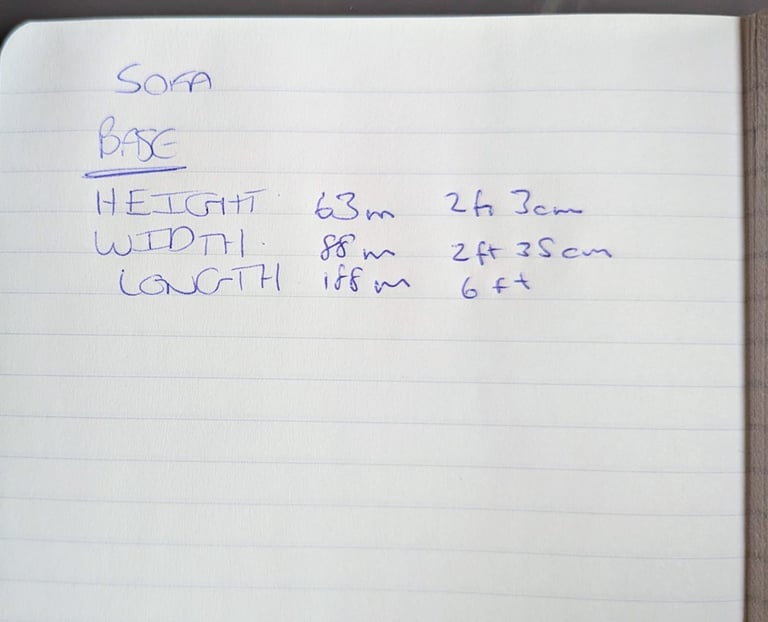 SOFA
BASE
HEIGHT 63m 2ft 3cm
WIDTH. 88m 2ft 35cm
LONGTH 188m 6ft